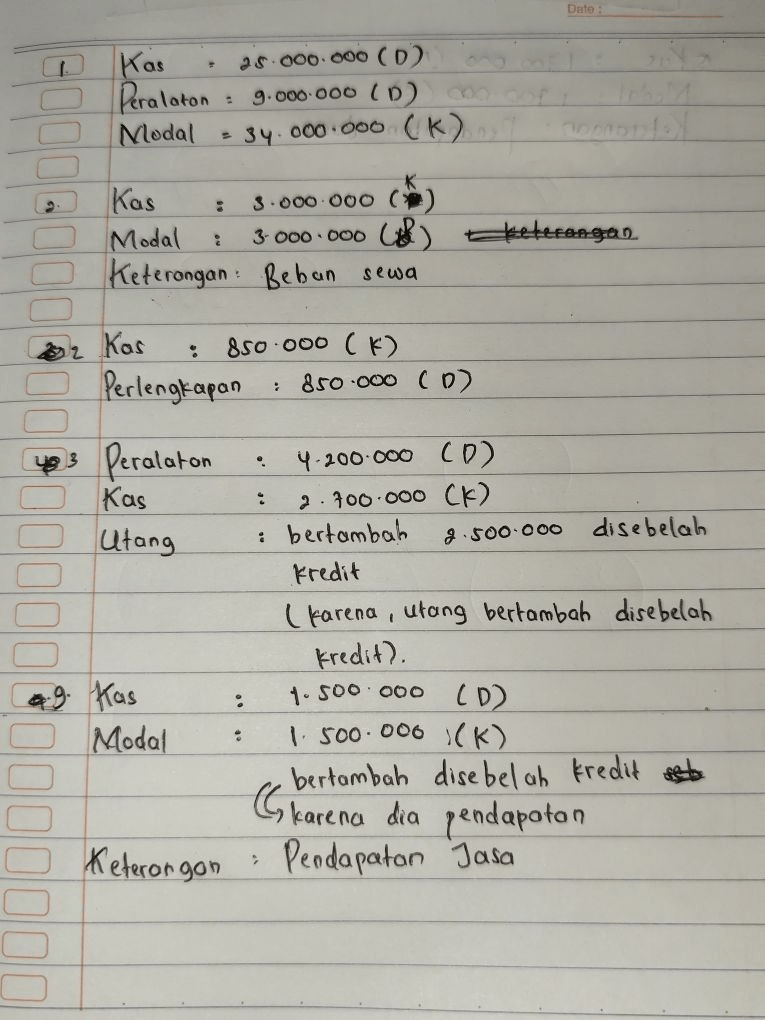 Date :
1. Kas : 25.000.000 (D)
Peralatan : 9.000.000 (D)
Modal = 34.000.000 (K)
2. Kas : 3.000.000 (K)
Modal : 3.000.000 (D) keterangan
Keterangan : Beban sewa
2 Kas : 850.000 (K)
Perlengkapan : 850.000 (D)
3 Peralatan : 4.200.000 (D)
Kas : 2.700.000 (K)
Utang : bertambah 2.500.000 disebelah
kredit
(karena, utang bertambah disebelah
kredit).
9. Kas : 1.500.000 (D)
Modal : 1.500.000 (K)
bertambah disebelah kredit
karena dia pendapatan
Keterangan : Pendapatan Jasa